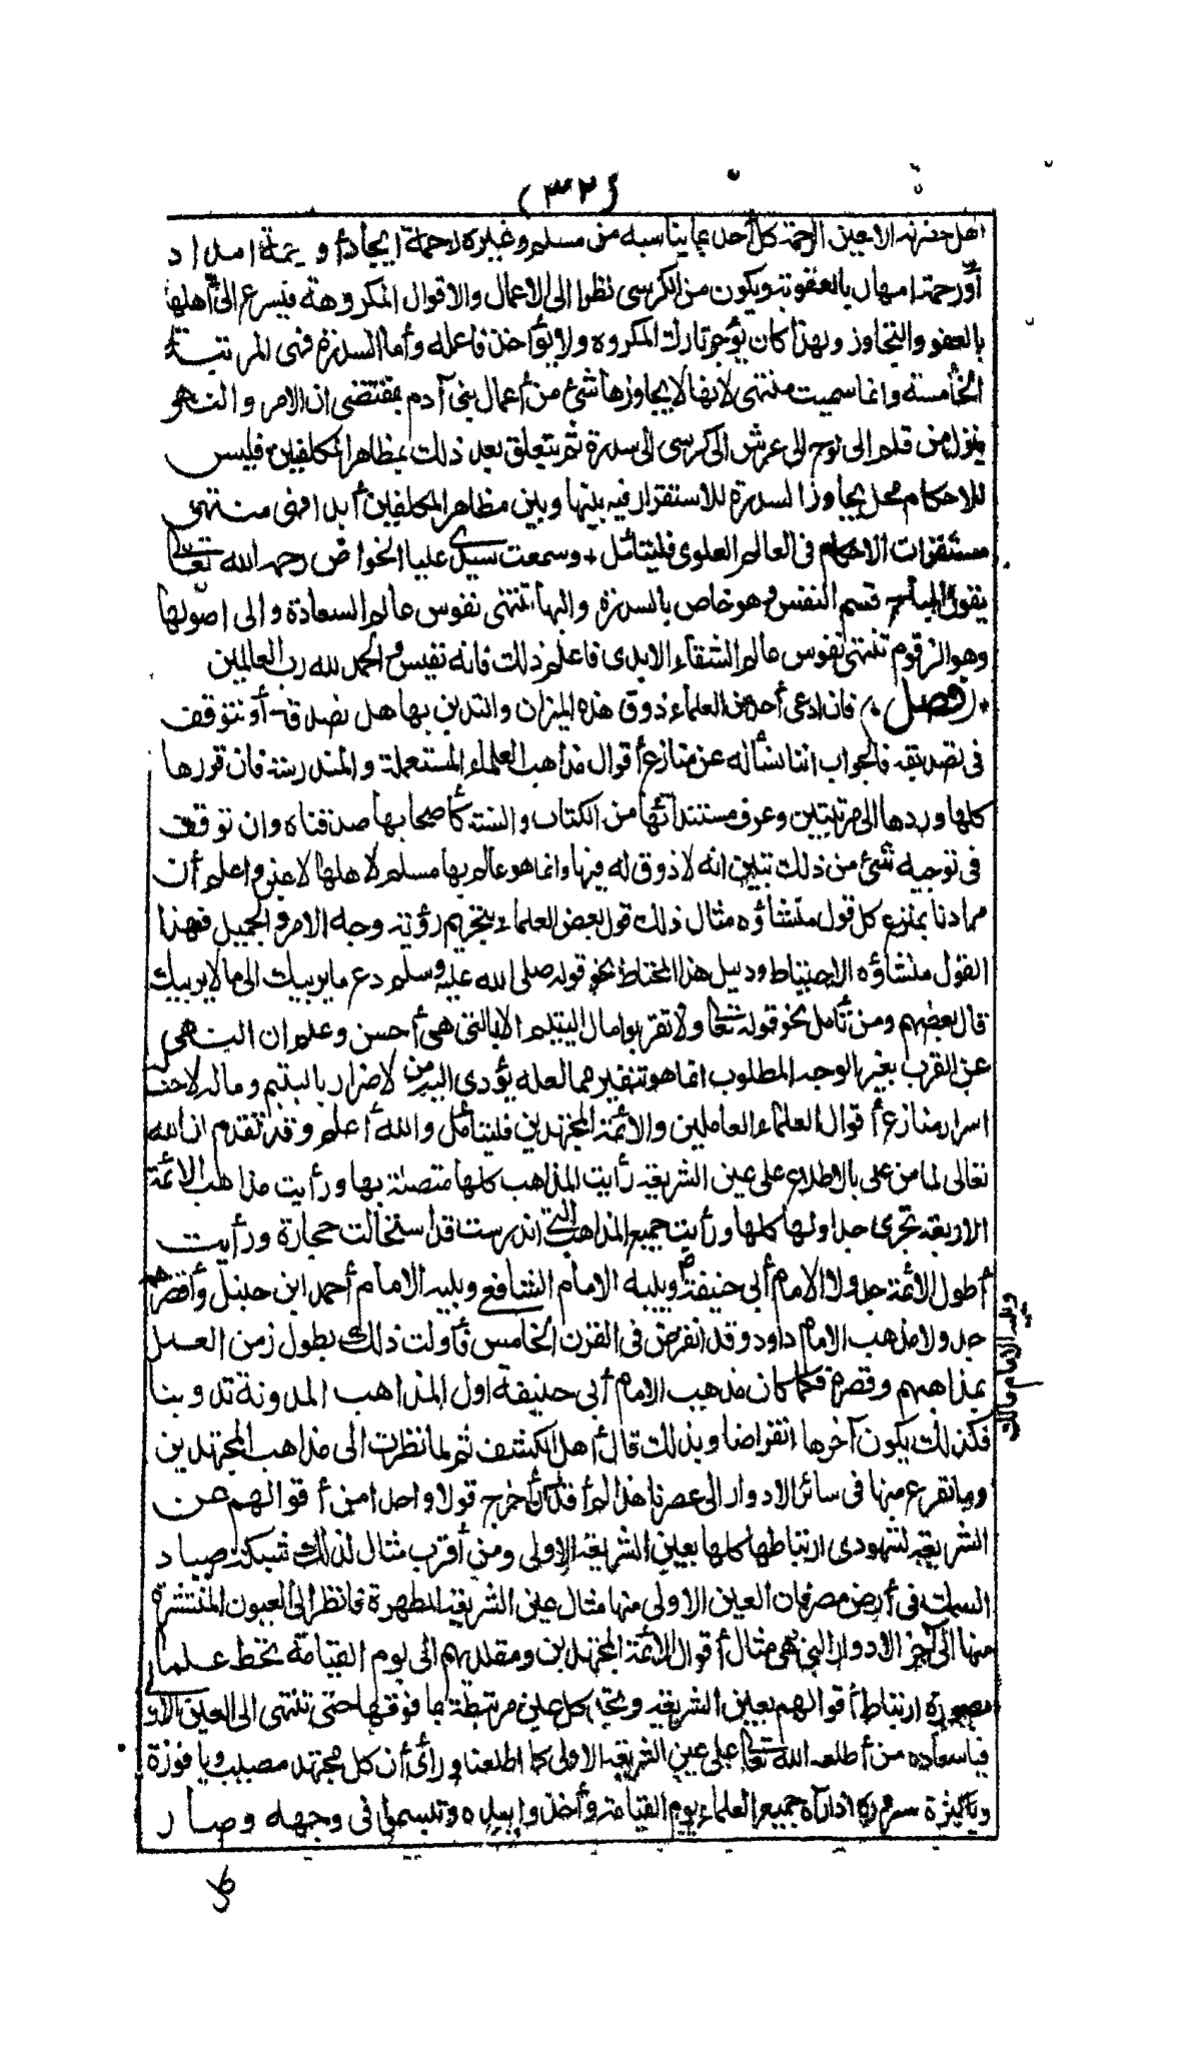 (٣٢)
اهل حضرته الا بعين الرحمة كل أحد بما يناسبه من مسلم وغيره رحمة ايجاد أو رحمة امداد
أو رحمة امهال بالعقوبة ويكون من الكرسى نظرا الى الاعمال والاقوال المكروهة فيسرع الى أهلها
بالعفو والتجاوز ولهذا كان يؤجر تارك المكروه ولا يؤاخذ فاعله وأما السدرة فهى المرتبة
الخامسة وانما سميت منتهى لانها لا يجاوزها شئ من أعمال بنى آدم بمقتضى ان الامر والنهى
ينزل من قلم الى لوح الى عرش الى كرسى الى سدرة ثم يتعلق بعد ذلك بمظاهر المكلفين فليس
للاحكام محل يجاوز السدرة للاستقرار فيه بينها وبين مظاهر المكلفين أبدا فهى منتهى
مستقرات الاحكام فى العالم العلوى فليتأمل وسمعت سيدى عليا الخواص رحمه الله تعالى
يقول المباح قسم النفس وهو خاص بالسدرة واليها تنتهى نفوس عالم السعادة والى اصولها
وهو الزقوم تنتهى نفوس عالم الشقاء الابدى فاعلم ذلك فانه نفيس والحمد لله رب العالمين
(فصل) فان ادعى أحد من العلماء ذوق هذه الميزان والتدين بها هل نصدقه أو نتوقف
فى تصديقه فالجواب اننا نسأله عن منازع أقوال مذاهب العلماء المستعملة والمندرسة فان قررها
كلها وردها الى مرتبتين وعرف مستنداتها من الكتاب والسنة كأصحابها صدقناه وان توقف
فى توجيه شئ من ذلك تبين انه لا ذوق له فيها وانما هو عالم بها مسلم لاهلها لاغير واعلم أن
مرادنا بمنزع كل قول منشاؤه مثال ذلك قول بعض العلماء بتحريم رؤية وجه الامرد الجميل فهذا
القول منشاؤه الاحتياط ودليل هذا المحتاط نحو قوله صلى الله عليه وسلم دع ما يريبك الى ما لا يريبك
قال بعضهم ومن تأمل نحو قوله تعالى ولا تقربوا مال اليتيم الا بالتى هى أحسن وعلم ان النهى
عن القرب بغير الوجه المطلوب انما هو تنفير مما لعله يؤدى اليه من الاضرار باليتيم وماله لاحت له
اسرار منازع أقوال العلماء العاملين والائمة المجتهدين فليتأمل والله أعلم وقد تقدم ان الله
تعالى لما من على بالاطلاع على عين الشريعة رأيت المذاهب كلها متصلة بها ورأيت مذاهب الائمة
الاربعة تجرى جداولها كلها ورأيت جميع المذاهب التى اندرست قد استحالت حجارة ورأيت
أطول الائمة جدولا الامام أبى حنيفة ويليه الامام الشافعى ويليه الامام أحمد ابن حنبل وأقصرهم
ويليه الامام مالك
جدولا مذهب الامام داود وقد انقرض فى القرن الخامس فأولت ذلك بطول زمن العمل
بمذاهبهم وقصره فكما كان مذهب الامام أبى حنيفة اول المذاهب المدونة تدوينا
فكذلك يكون آخرها انقراضا وبذلك قال أهل الكشف ثم لما نظرت الى مذاهب المجتهدين
وما تفرع منها فى سائر الادوار الى عصرنا هذا لم أقدر أن أخرج قولا واحدا من أقوالهم عن
الشريعة لشهودى ارتباطها كلها بعين الشريعة الاولى ومن أقرب مثال لذلك شبكة صياد
السمك فى أرض مصر فان العين الاولى منها مثال عين الشريعة المطهرة فانظر الى العيون المنتشرة
منها الى آخر الادوار التى هى مثال أقوال الائمة المجتهدين ومقلديهم الى يوم القيامة تحط علما
بصورة ارتباط أقوالهم بعين الشريعة وتجد كل عين مرتبطة بما فوقها حتى تنتهى الى العين الاولى
فيا سعادة من أطلعه الله تعالى على عين الشريعة الاولى كما اطلعنا ورأى أن كل مجتهد مصيب ويا فوزه
ويا كثرة سروره اذا رآه جميع العلماء يوم القيامة وأخذوا بيده وتبسموا فى وجهه وصار
كل